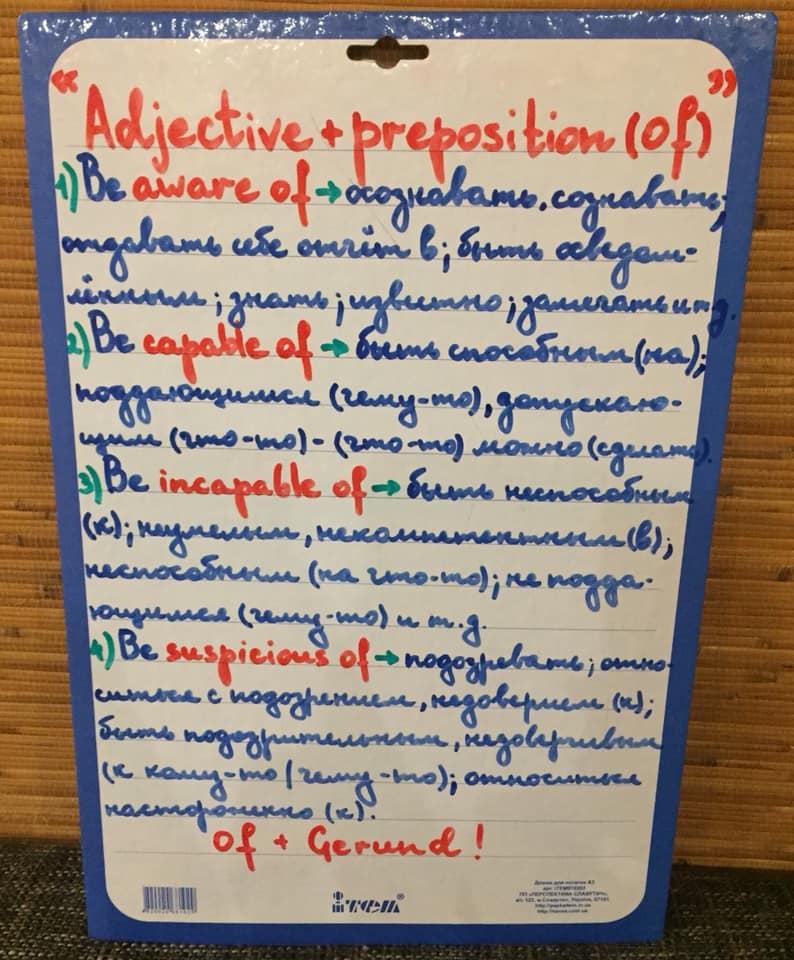 "Adjective + preposition (of)"
1) Be aware of → осознавать, сознавать;
отдавать себе отчёт в; быть осведом-
лённым; знать; известно; замечать и т.д.
2) Be capable of → быть способным (на);
поддающимся (чему-то), допускаю-
щим (что-то) - (что-то) можно (сделать).
3) Be incapable of → быть неспособным
(к); неумелым, некомпетентным (в);
неспособным (на что-то); не подда-
ющимся (чему-то) и т.д.
4) Be suspicious of → подозревать; отно-
ситься с подозрением, недоверием (к);
быть подозрительным, недоверчивым
(к кому-то / чему-то); относиться
настороженно (к).
Of + Gerund!
ітем®
Дошка для нотаток А3